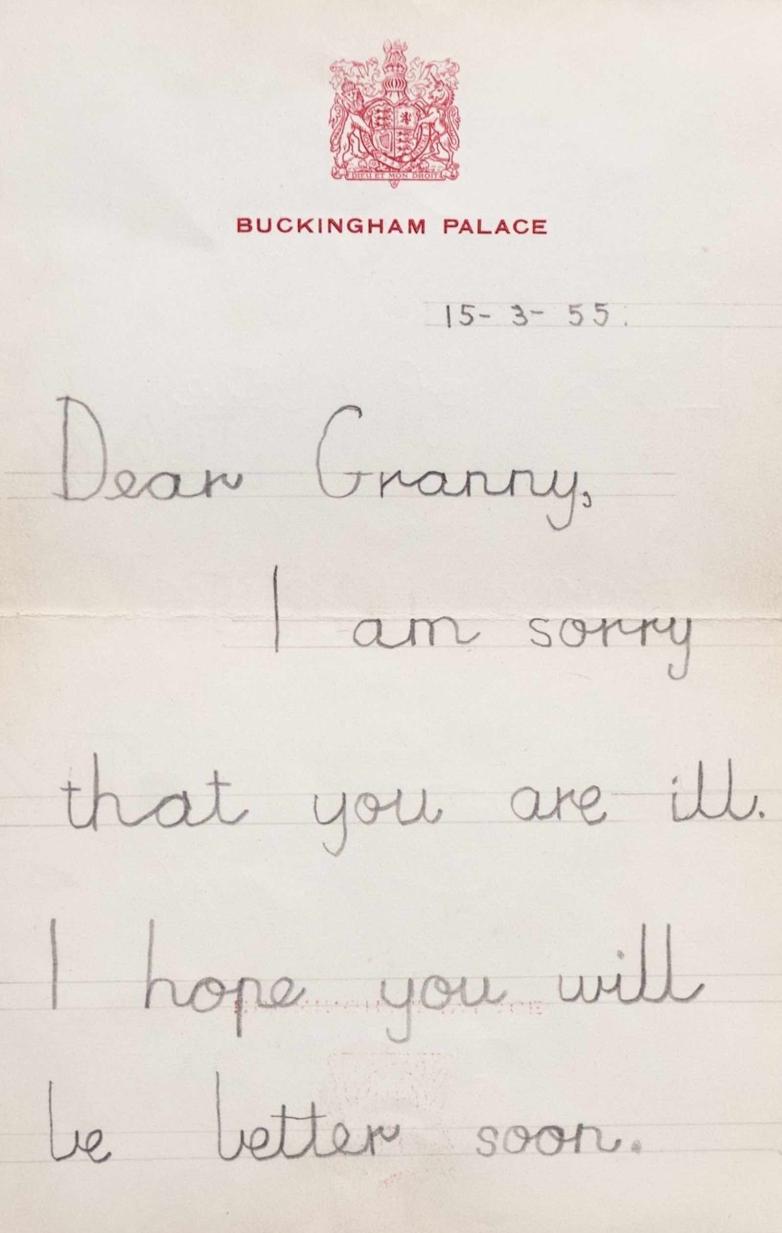 DIEU ET MON DROIT
BUCKINGHAM PALACE
15-3-55.
Dear Granny,
I am sorry
that you are ill.
I hope you will
be better soon.